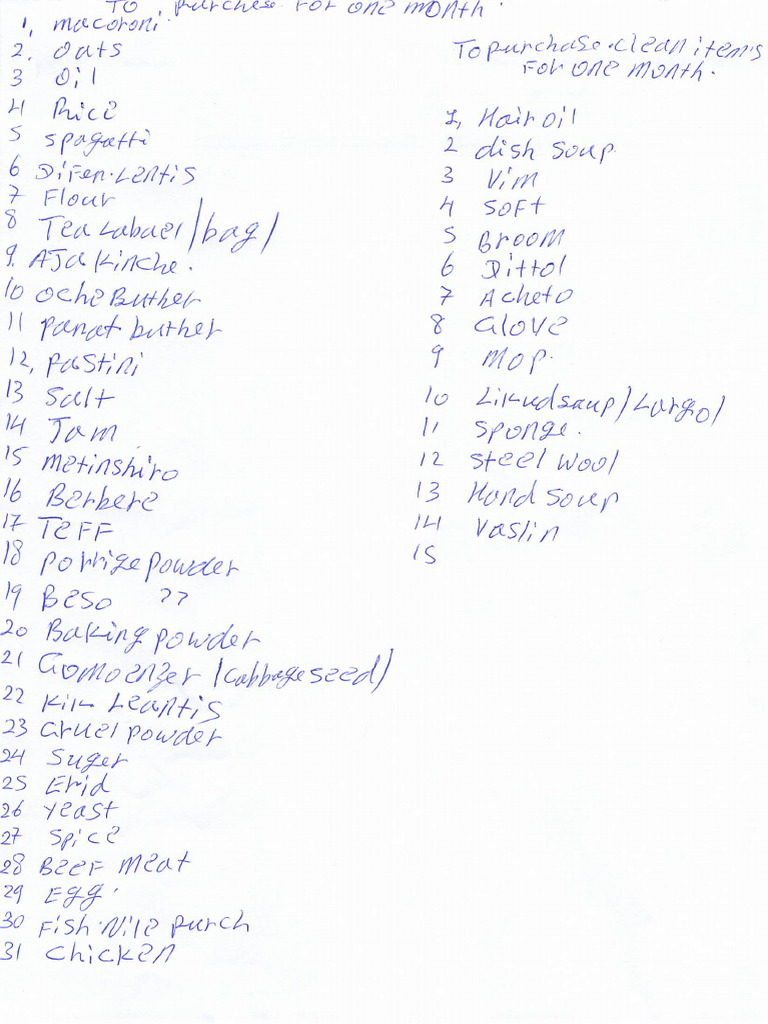 TO purchase for one month.
1, macoroni
2. oats
3 oil
4 Rice
5 spagatti
6 Difen.Lentis
7 Flour
8 Tea Labael/bag/
9. AJa kinche.
10 oche Buther
11 panat buther
12, pastini
13 Salt
14 Jam
15 metinshiro
16 Berbere
17 TeFF
18 porrige powder
19 Beso ??
20 Baking powder
21 Gomoenzer /cabbage seed/
22 kik Leantis
23 Gruel powder
24 Suger
25 Erid
26 yeast
27 spice
28 BeeF meat
29 Egg.
30 Fish.Nile purch
31 chicken
To purchase.clean item's
For one month.
1, Hair oil
2 dish soup
3 Vim
4 soft
5 Broom
6 Dittol
7 Acheto
8 Glove
9 mop.
10 Likudsoup/Largo/
11 sponge.
12 steel wool
13 Hand soup
14 vaslin
15